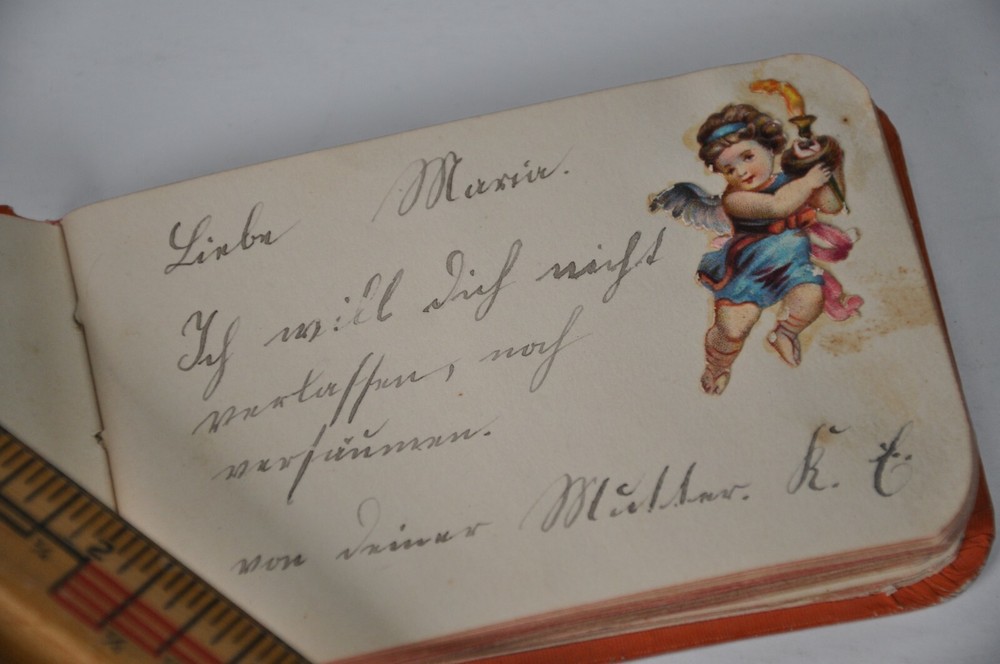 Liebe Maria.
Ich will dich nicht
verlassen, noch
versäumen.
von deiner Mutter. K. E.
2